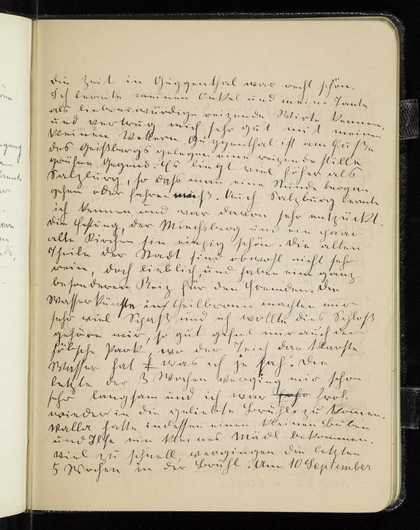 die Zeit in Guggenthal war recht schön.
Ich lernte meinen Onkel und meine Tante
als liebenswürdige reizende Wirte kennen,
und vertrug mich sehr gut mit meinen
kleinen Vettern. Guggenthal ist am Fuße
des Geißbergs gelegen, eine reizende stille
grüne Gegend. Es liegt viel höher als
Salzburg, so daß man eine Stunde bergan
gehen oder fahren muß. Auch Salzburg lernte
ich kennen und war davon sehr entzückt.
Die Festung, der Mönchsberg und ein paar
alte Kirchen sind einzig schön. Die alten
Theile der Stadt sind obwohl nicht sehr
rein, doch lieblich, und haben eine ganz
besonderen Reiz für den Fremden. Die
Wasserkünste in Heilbronn machten mir
sehr viel Spaß und ich wollte dies Schloß
gehöre mir, so gut gefiel mir auch der
hübsche Park, wo der Teich das klarste
Wasser hat was ich je sah. Die
letzte der 3 Wochen verging mir schon
sehr langsam und ich war froh
wieder in die geliebte Brühl zu kommen.
Wally hatte indessen einen kleinen Buben
und Ilse ein kleines Mädl bekommen.
Viel zu schnell vergingen die letzten
5 Wochen in der Brühl. Am 10 September